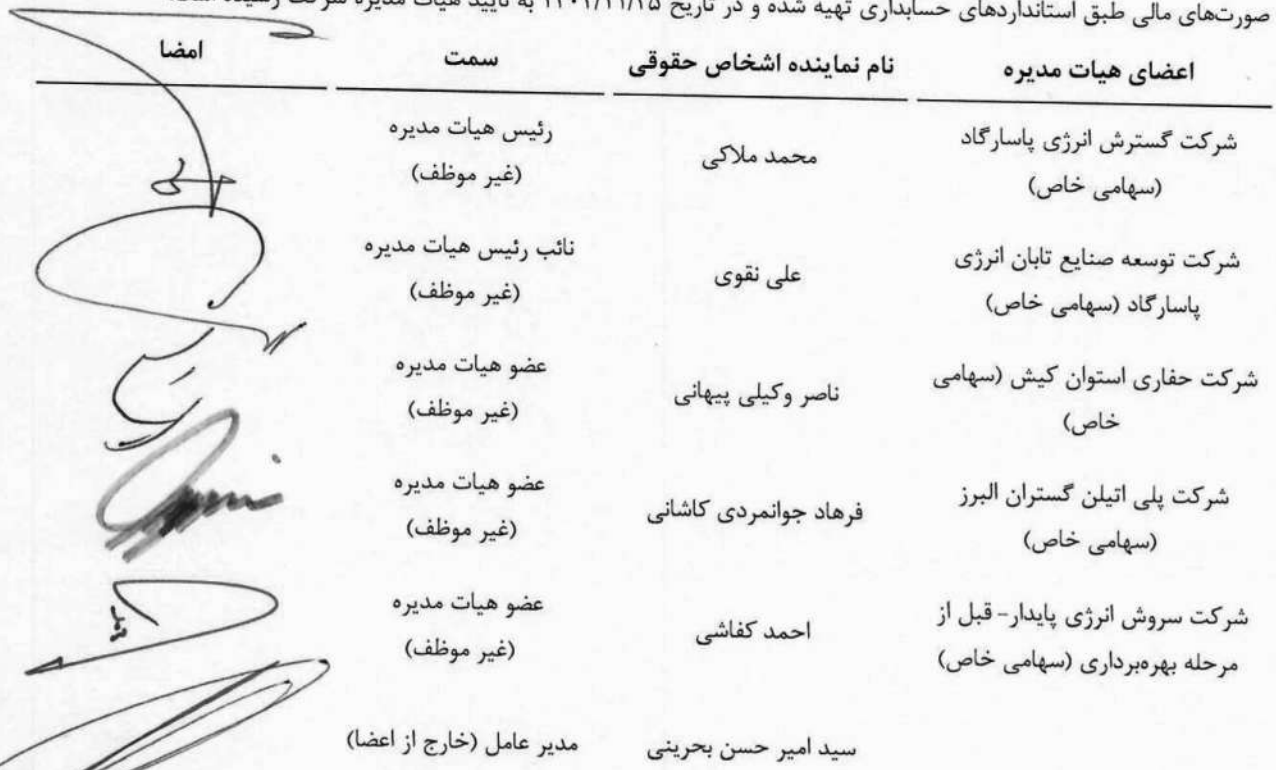 صورت‌های مالی طبق استانداردهای حسابداری تهیه شده و در تاریخ ۱۴۰۱/۱۱/۲۵ به تایید هیات مدیره شرکت رسیده است
اعضای هیات مدیره نام نماینده اشخاص حقوقی سمت امضا
شرکت گسترش انرژی پاسارگاد
(سهامی خاص)
محمد ملاکی
رئیس هیات مدیره
(غیر موظف)
شرکت توسعه صنایع تابان انرژی
پاسارگاد (سهامی خاص)
علی نقوی
نائب رئیس هیات مدیره
(غیر موظف)
شرکت حفاری استوان کیش (سهامی
خاص)
ناصر وکیلی پیهانی
عضو هیات مدیره
(غیر موظف)
شرکت پلی اتیلن گستران البرز
(سهامی خاص)
فرهاد جوانمردی کاشانی
عضو هیات مدیره
(غیر موظف)
شرکت سروش انرژی پایدار- قبل از
مرحله بهره‌برداری (سهامی خاص)
احمد کفاشی
عضو هیات مدیره
(غیر موظف)
سید امیر حسن بحرینی
مدیر عامل (خارج از اعضا)